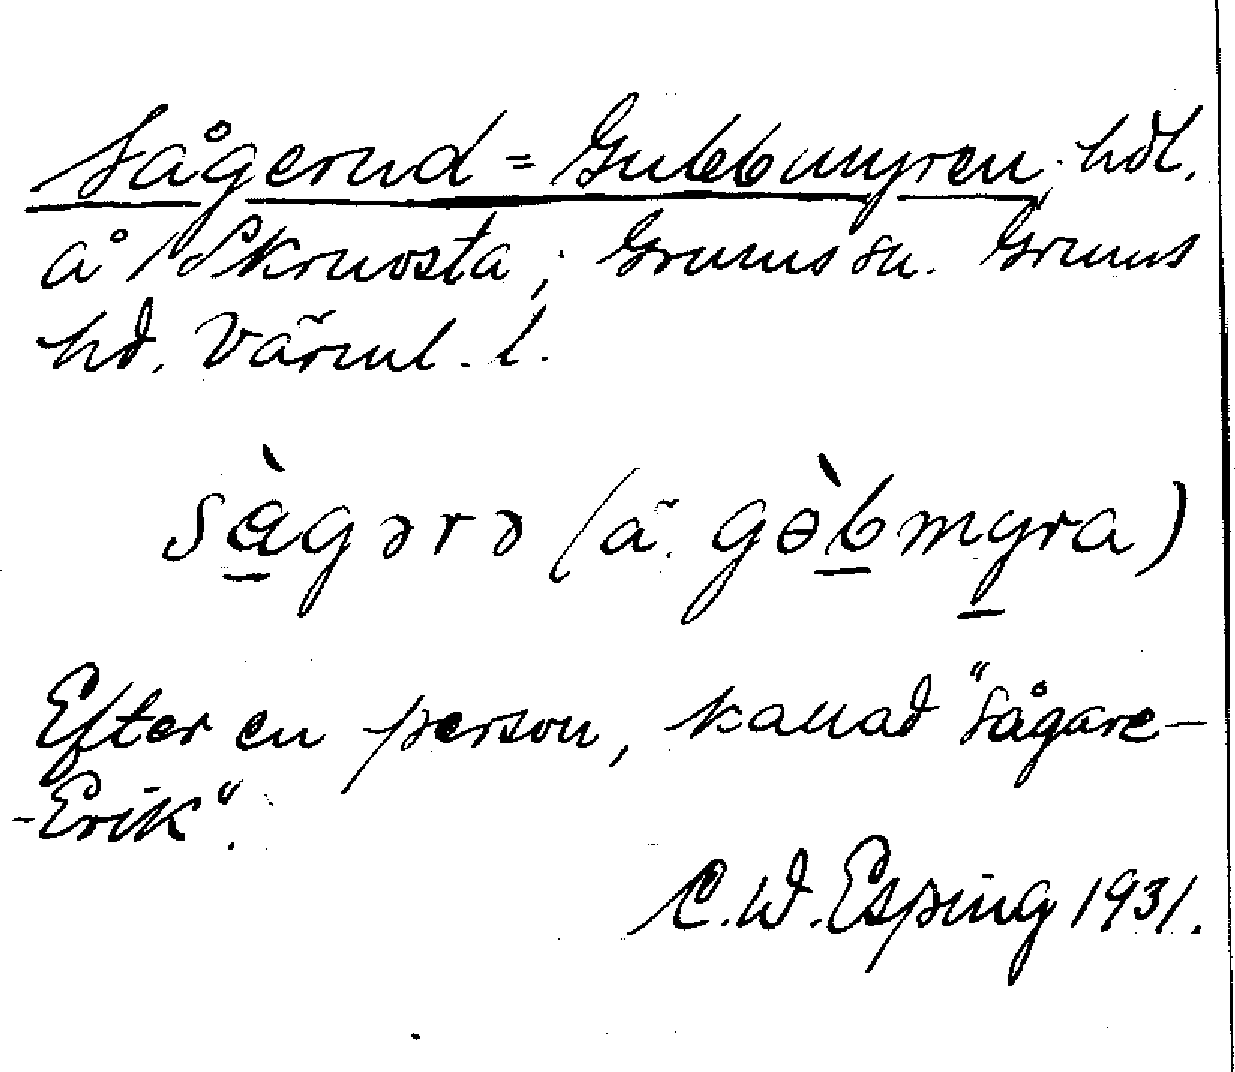 Sågerud = Gubbmyren, hdl.
å 1 Skruvsta; Grums sn. Grums
hd. Värml. l.
sàgərə (ä. gɵ̀bmyra)
Efter en person, kallad "Sågare-
-Erik".
C.W. Esping 1931.